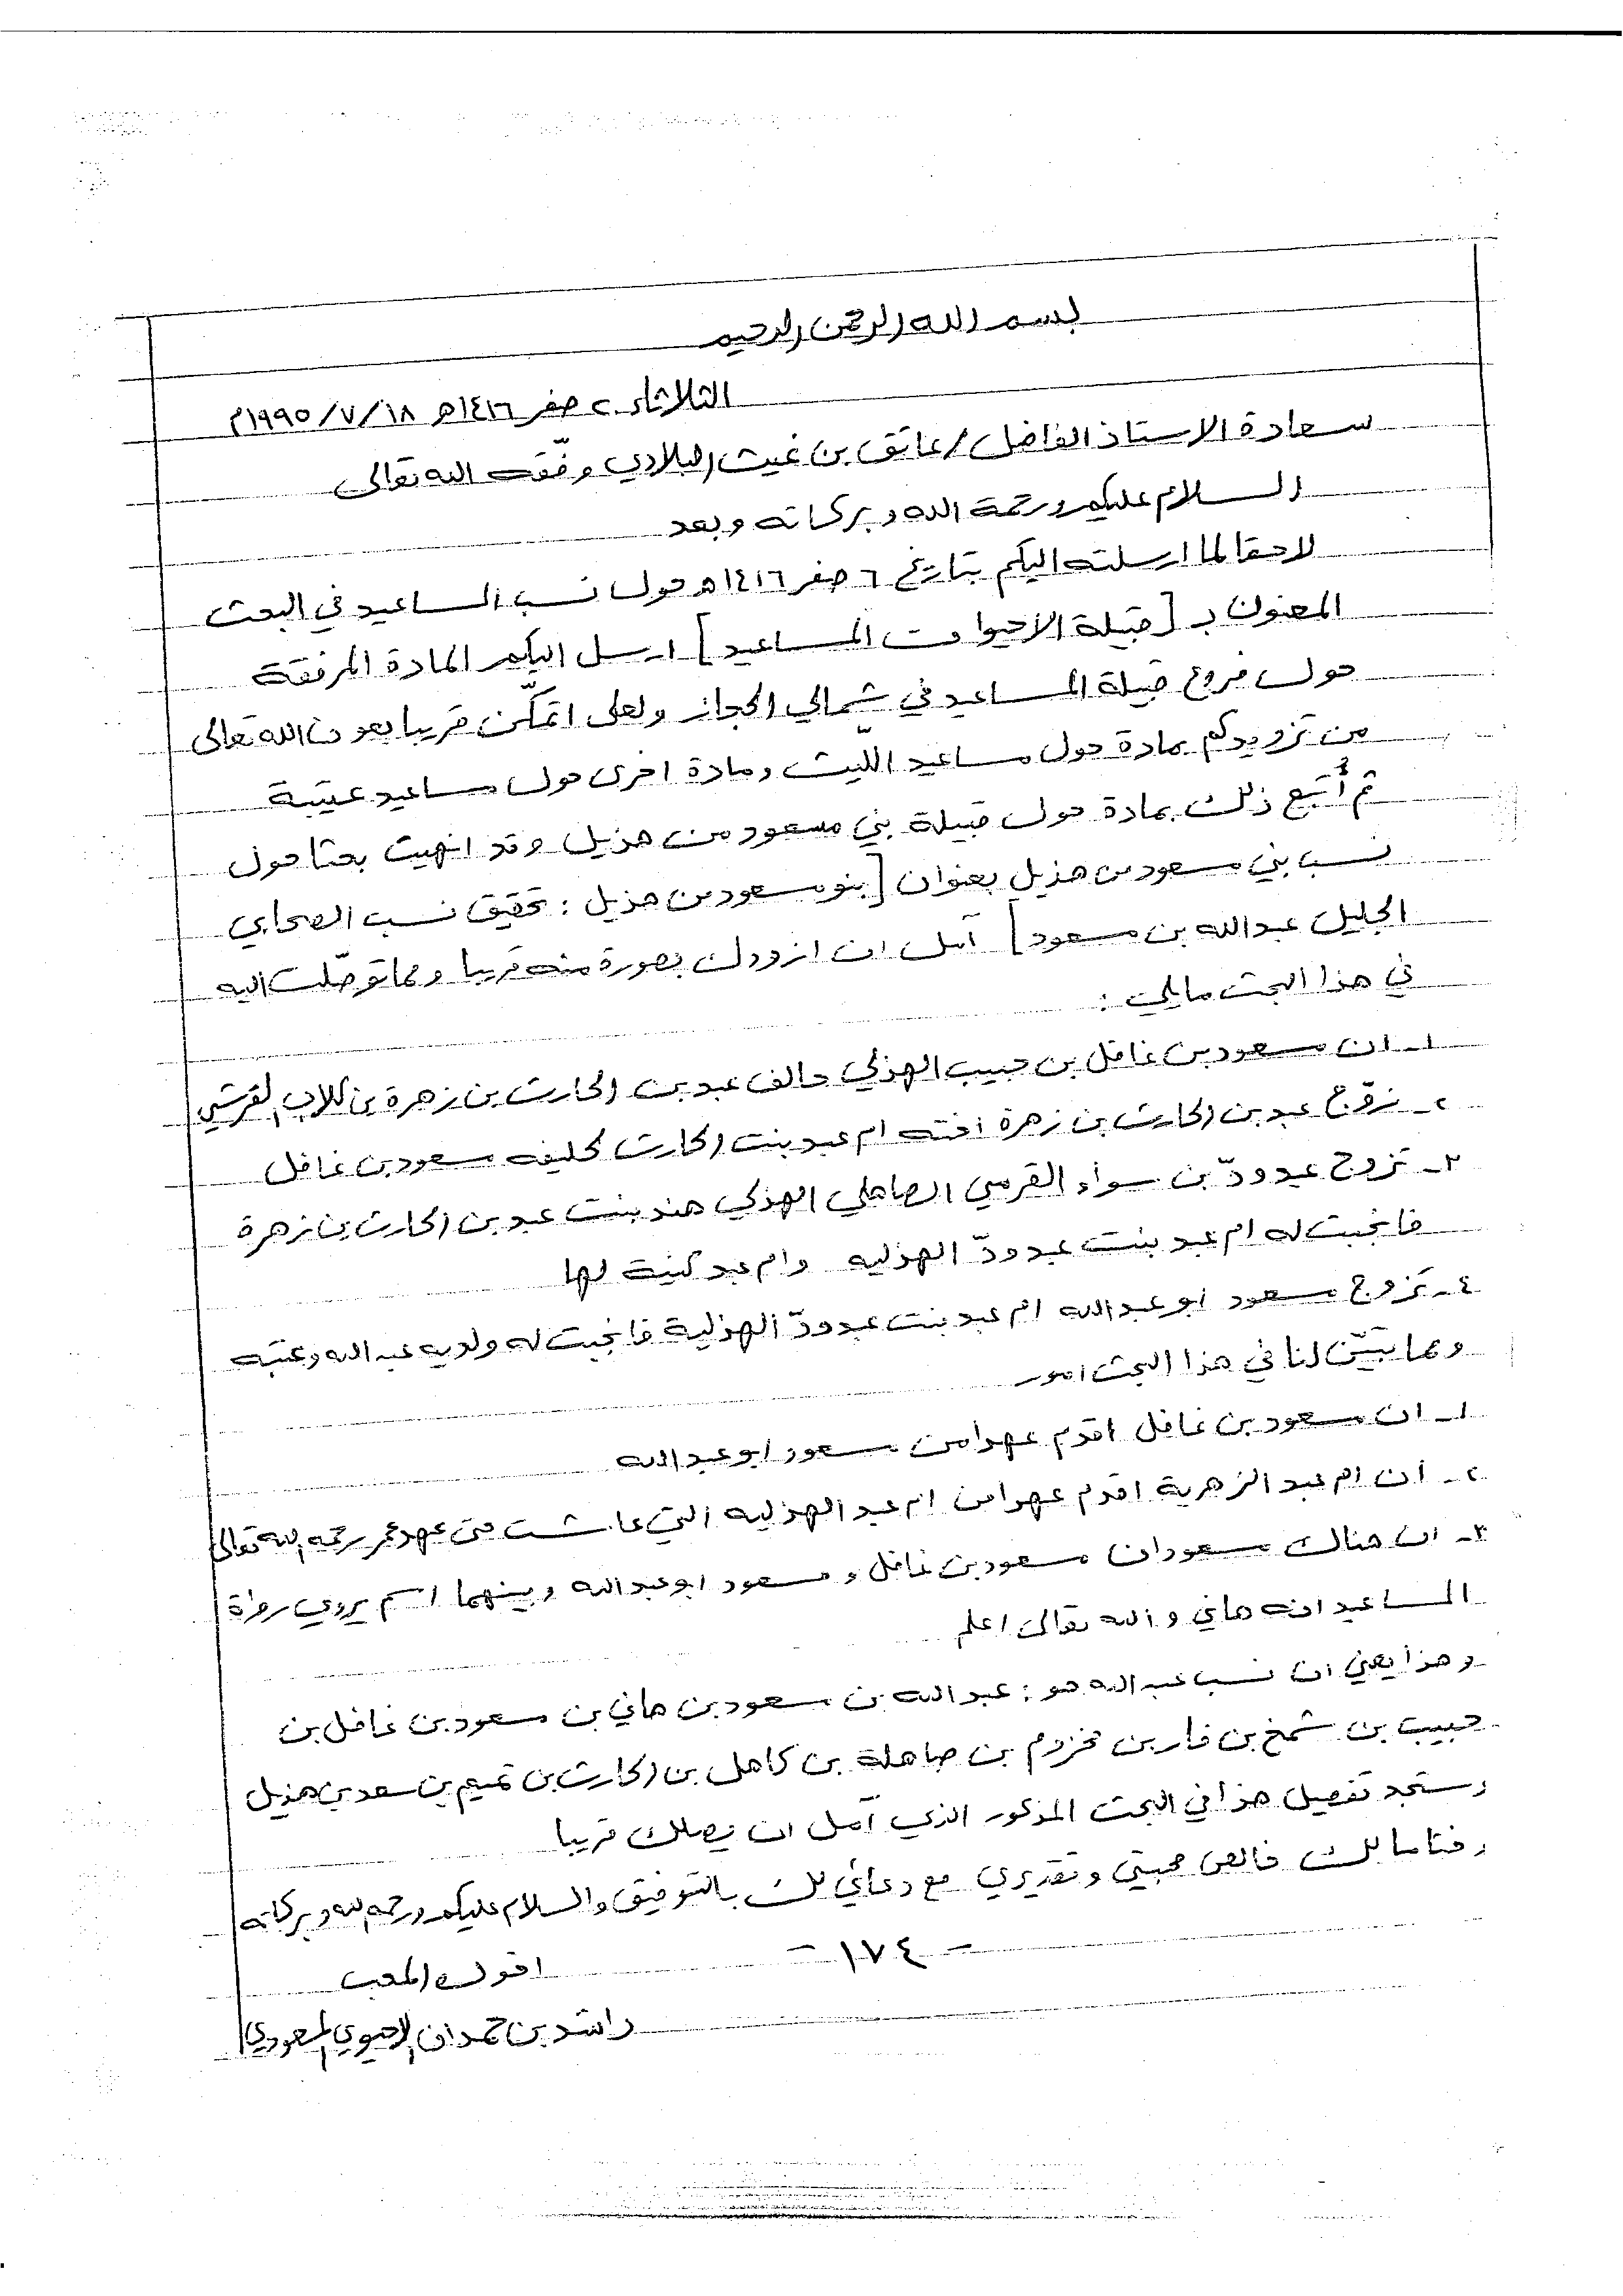 بسم الله الرحمن الرحيم
الثلاثاء ٢٠ صفر ١٤١٦هـ ١٨/٧/١٩٩٥م
سعادة الاستاذ الفاضل/عاتق بن غيث البلادي وفّقه الله تعالى
السلام عليكم ورحمة الله وبركاته وبعد
لاحقا لما ارسلته اليكم بتاريخ ٦ صفر ١٤١٦هـ حول نسب المساعيد في البحث
المعنون بـ [قبيلة الاحيوات المساعيد] ارسل اليكم المادة المرفقة
حول فروع قبيلة المساعيد في شمالي الحجاز ولعلى اتمكّن قريبا بعون الله تعالى
من تزويدكم بمادة حول مساعيد اللّيث ومادة اخرى حول مساعيد عتيبة
ثم أُتبع ذلك بمادة حول قبيلة بني مسعود من هذيل وقد انهيت بحثا حول
نسب بني مسعود من هذيل بعنوان [بنو مسعود من هذيل : تحقيق نسب الصحابي
الجليل عبدالله بن مسعود] آمل ان ازودك بصورة منه قريبا ومما توصّلت اليه
في هذا البحث مايلي :
١- ان مسعود بن غافل بن حبيب الهذلي حالف عبد بن الحارث بن زهرة بن كلاب القرشي
٢- زوّج عبد بن الحارث بن زهرة اخته ام عبد بنت الحارث لحليفه مسعود بن غافل
٣- تزوج عبدودّ بن سواء القرمي الصاهلي الهذلي هند بنت عبد بن الحارث بن زهرة
فانجبت له ام عبد بنت عبدودّ الهذليه وام عبد كنية لها
٤- تزوج مسعود ابو عبدالله ام عبد بنت عبدودّ الهذلية فانجبت له ولديه عبدالله وعتبه
ومما تبيّن لنا في هذا البحث امور
١- ان مسعود بن غافل اقدم عهدا من مسعود ابو عبدالله
٢- ان ام عبد الزهرية اقدم عهدا من ام عبد الهذليه التي عاشت حتى عهد عمر رحمه الله تعالى
٣- ان هناك مسعودان مسعود بن غافل ومسعود ابو عبدالله وبينهما اسم يروي رواة
المساعيد انه هاني والله تعالى اعلم
وهذا يعني ان نسب عبدالله هو : عبدالله بن مسعود بن هاني بن مسعود بن غافل بن
حبيب بن شمخ بن فار بن مخزوم بن صاهلة بن كاهل بن الحارث بن تميم بن سعد بن هذيل
وستجد تفصيل هذا في البحث المذكور الذي آمل ان يصلك قريبا
وختاما لك خالص محبتي وتقديري مع دعائي لك بالتوفيق والسلام عليكم ورحمه الله وبركاته
- ١٧٤ -
اخوك المحب
راشد بن حمدان الاحيوي المسعودي